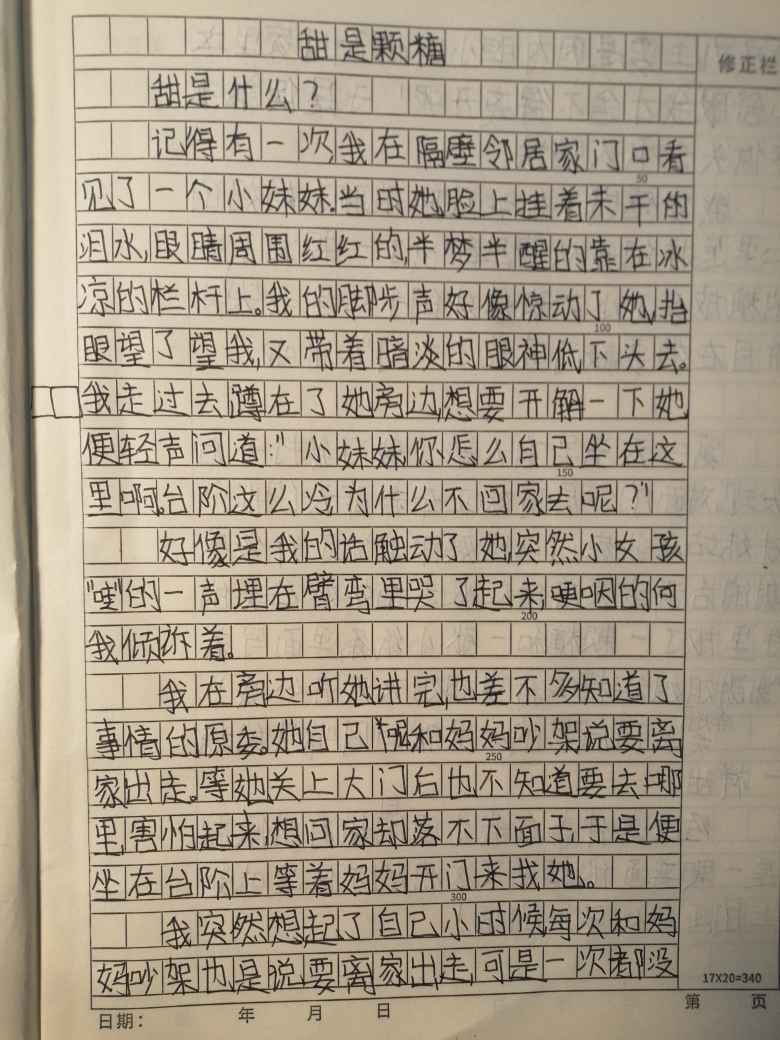 甜是颗糖
修正栏
甜是什么?
记得有一次,我在隔壁邻居家门口看
50
见了一个小妹妹.当时她脸上挂着未干的
泪水,眼睛周围红红的,半梦半醒的靠在冰
凉的栏杆上。我的脚步声好像惊动了她,抬
100
眼望了望我,又带着暗淡的眼神低下头去。
我走过去蹲在了她旁边,想要开解一下她
便轻声问道:"小妹妹,你怎么自己坐在这
150
里啊。台阶这么冷,为什么不回家去呢?"
好像是我的话触动了她,突然小女孩
"哇"的一声埋在臂弯里哭了起来,哽咽的向
200
我倾诉着。
我在旁边听她讲完,也差不多知道了
事情的原委。她自己和妈妈吵架说要离
250
家出走。等她关上大门后也不知道要去哪
里,害怕起来,想回家却落不下面子,于是便
坐在台阶上等着妈妈开门来找她。
300
我突然想起了自己小时候每次和妈
妈吵架也是说要离家出走,可是一次都没
17X20=340
日期: 年 月 日
第 页